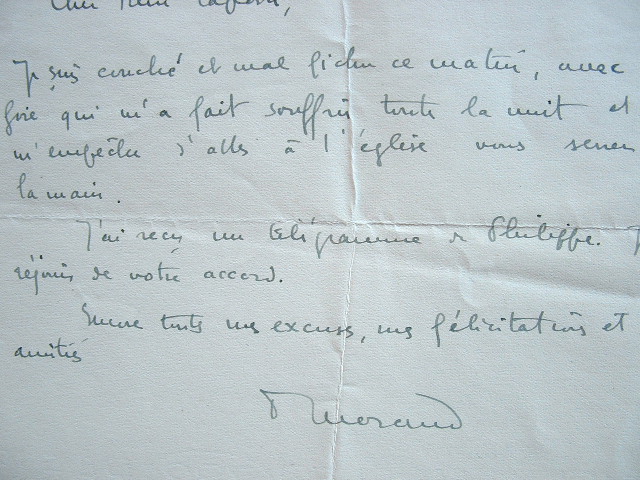 Je suis couché et mal fichu ce matin, avec
foie qui m'a fait souffrir toute la nuit et
m'empêche d'aller à l'église vous serrer
la main.
J'ai reçu un télégramme de Philippe.
réjouis de votre accord.
Encore toutes mes excuses, mes félicitations et
amitiés
Morand